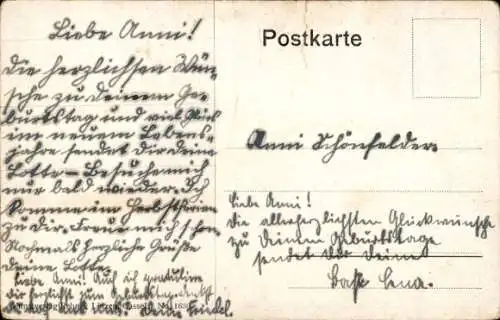 Liebe Anni!
Die herzlichsten Wün-
sche zu Deinem Ge-
burtstag und viel Glück
im neuem Lebens-
jahre sendet Dir Deine
Lotte – Besuche mich
nur bald wieder. Ich
komme im Herbstferien
zu Dir. Freue mich schon.
Nochmals herzliche Grüße
Deine Lotte.
Liebe Anni! Auch ich gratuliere
Dir herzlichst zum Geburtstag
Deine
Postkarte
Anni Schönfelder.
Liebe Anni!
Die allerherzlichsten Glückwünsche
zu Deinem Geburtstage
sendet Dir Deine
Base Lena.